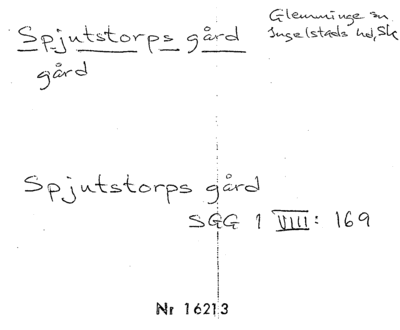 Spjutstorps gård
gård
Glemminge sn
Ingelstads hd, Sk
Spjutstorps gård
SGG 1 VIII: 169
Nr 16213